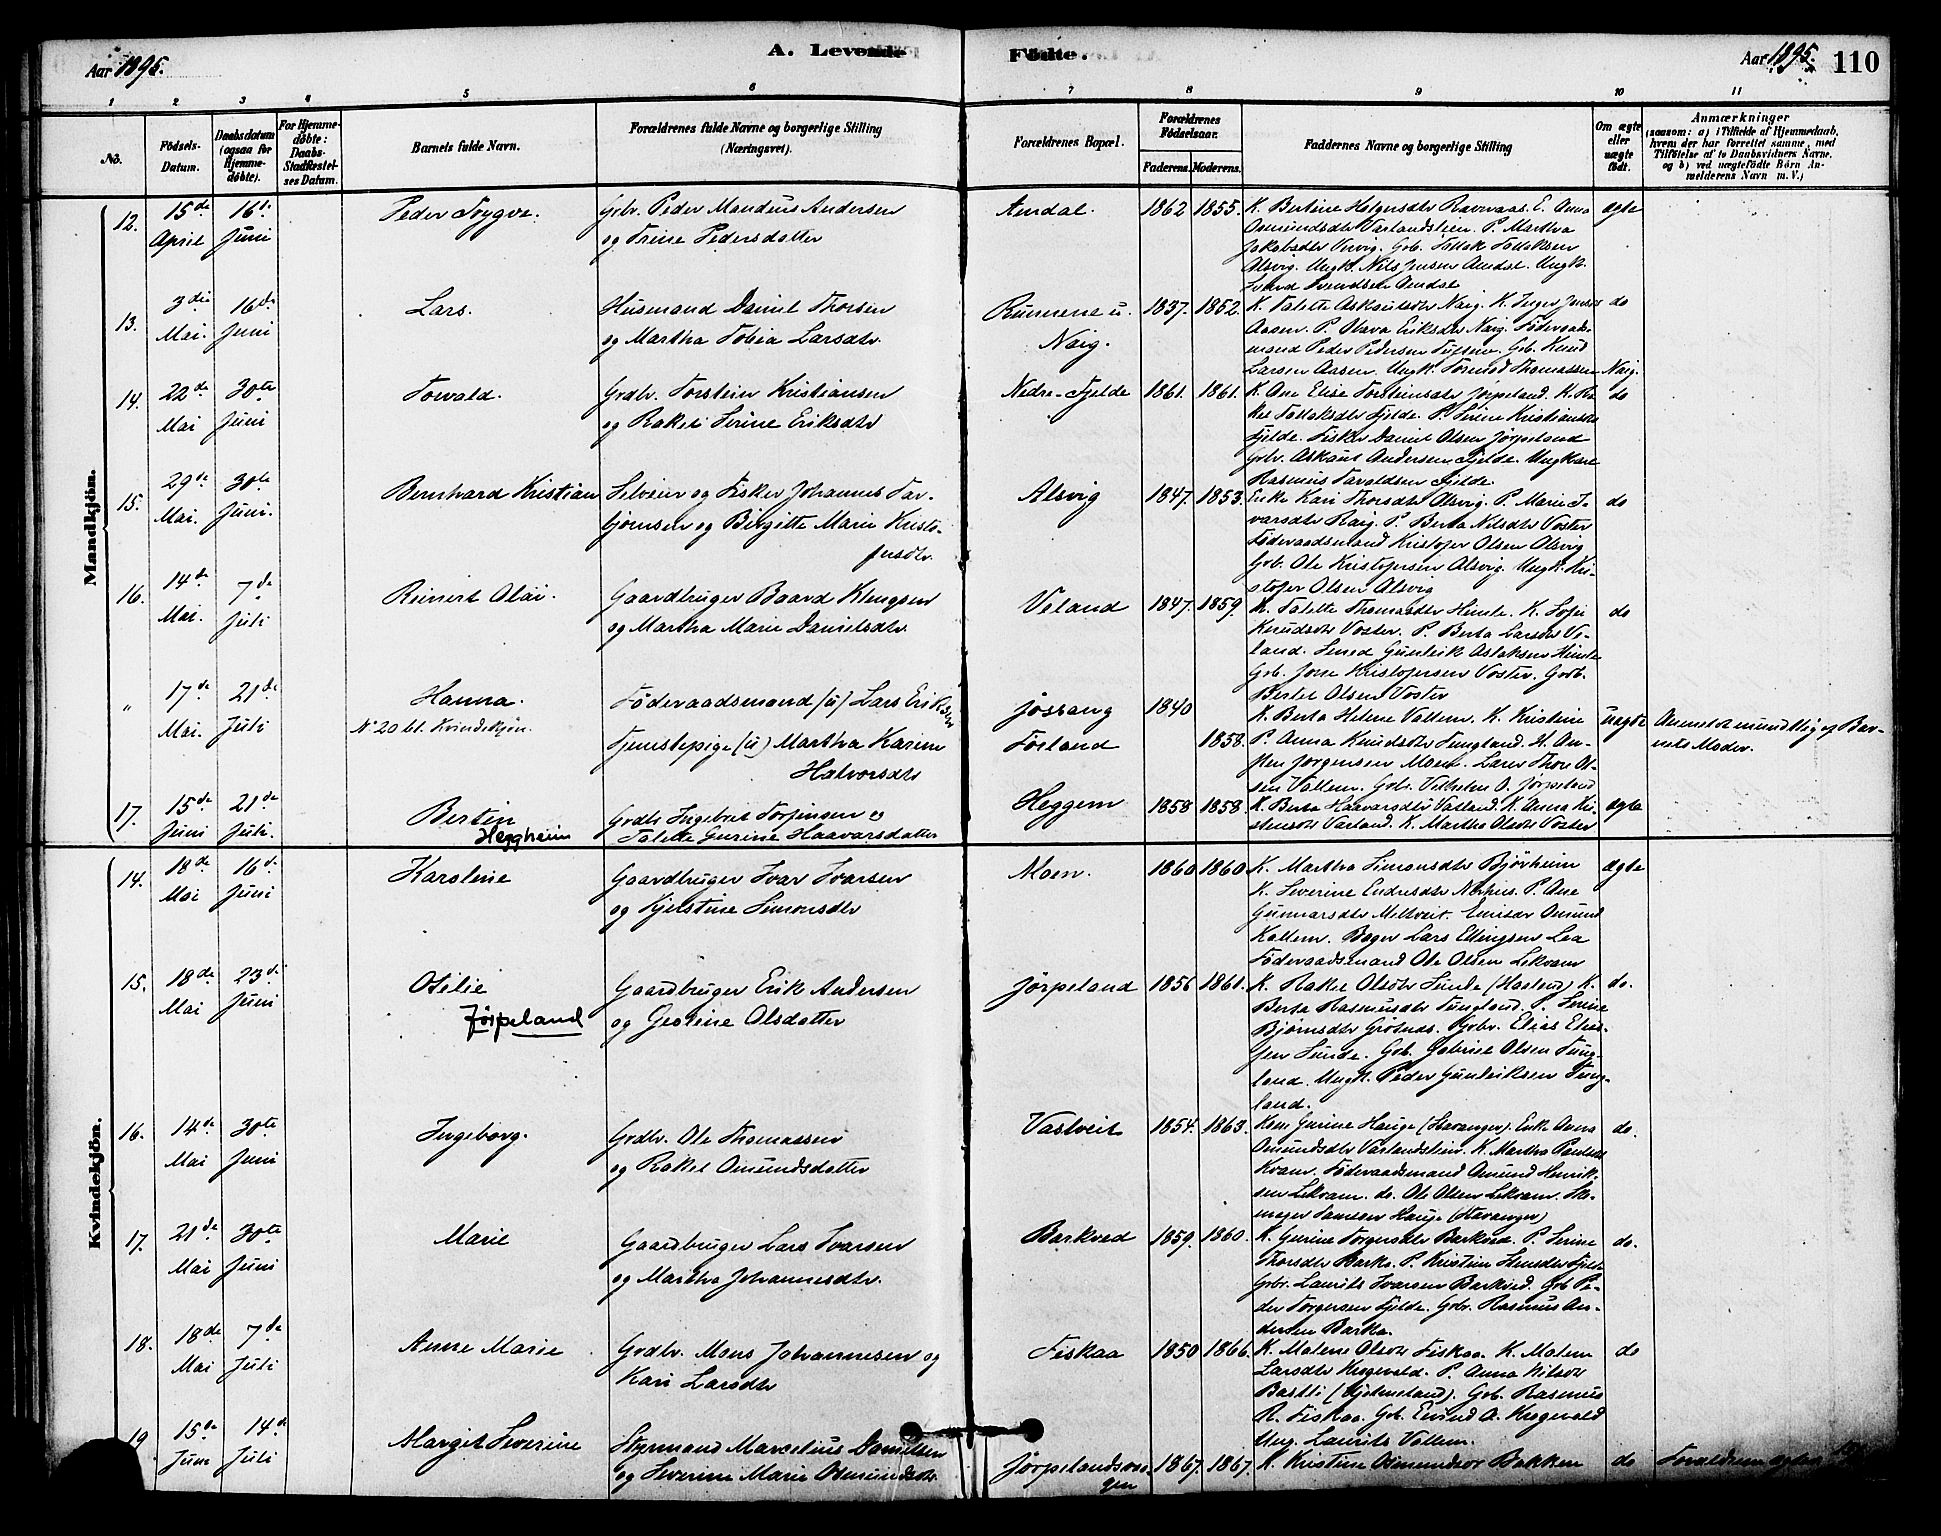 Aar 1895.
A. Levende
Fødte.
Aar 1895.
110
1 2 3 4 5 6 7 8 9 10 11
No.
Fødsels-Datum.
Daabsdatum (ogsaa for Hjemme-døbte).
For Hjemme-døbte: Daabs-Stadfæstel-ses Datum.
Barnets fulde Navn.
Forældrenes fulde Navne og borgerlige Stilling
(Næringsvei).
Forældrenes Bopæl.
Forældrenes Fødselsaar.
Faderens. Moderens.
Faddernes Navne og borgerlige Stilling
Om ægte eller uægte født.
Anmærkninger
(saasom: a) i Tilfælde af Hjemmedaab, hvem der har forrettet samme, med Tilføielse af to Daabsvidners Navne, og b) ved uægtefødte Børn An-melderens Navn m. V.)
Mandkjøn.
12. 15de April 16de Juni Peder Trygve. Gbr. Peder Mandius Andersen
og Trine Pedersdatter
Amdal. 1862 1855. K. Bertine Helgersdtr Ravnaas. E. Anna
Osmundsdtr Varlandsteen. P. Martha
Jakobsdtr Vervig. Gbr. Tollak Tollaksen
Alsvig. Ungk. Nils Jensen Amdal. Ungk.
Svend Svendsen Amdal
ægte
13. 3die Mai. 16de Juni Lars. Husmand Daniel Thorsen
og Martha Tobia Larsdtr.
Rummene u. Naig. 1837. 1852. K. Talette Aslaksdtr Naig. K. Inger Jensdtr
Aasen. P. Olava Eriksdtr Naig. Føderaads-
mand Peder Pedersen Tufsene. Gbr. Knud
Larsen Aasen. Ungk. Tormod Thomassen Naig.
do
14. 22de Mai 30te Juni Torvald. Grdbr. Torstein Kristiansen
og Rakel Serine Eriksdtr
Nedre-Fjelde 1861. 1861. K. Ane Elise Torsteinsdtr Jørpeland. K. Ra-
kel Tollaksdtr Fjelde. P. Serine Kristiansdtr
Fjelde. Fisker Daniel Olsen Jørpeland
Grbr. Askaut Andersen Fjelde. Ungkarl
Rasmus Taraldsen Fjelde.
do
15. 29de Mai. 30te Juni. Bernhard Kristian Selveier og Fisker Johannes Tor-
bjørnsen og Birgitte Marie Kristo-
fersdtr.
Alsvig 1847. 1853. Enke Kari Thorsdtr Alsvig. P. Marie I-
varsdtr Raig. P. Berta Nilsdtr Voster
Føderaadsmand Kristofer Olsen Alsvig
Gbr. Ole Kristofersen Alsvig. Ungk. Kri-
stofer Olsen Alsvig
do
16. 14de Mai. 7de Juli Reinert Olai. Gaardbruger Baard Klengsen
og Martha Marie Danielsdtr.
Veland 1847. 1859. K. Talette Thomasdtr Himle. K. Sofie
Knudsdtr Voster. P. Berta Larsdtr Ve-
land. Smed Gunleik Aslaksen Himle
Gbr. Jone Kristofersen Voster. Grdb.
Bertel Olsen Voster
do
" 17de Mai. 21de Juli Hanna.
No 20 bl. Kvindekjøn.
Føderaadsmand (u) Lars Eriksen
Tjenestepige (u) Martha Karine
Halvorsdtr
Jøssang
Førland
1840
1858.
K. Berta Helene Vallem. K. Kristine
P. Anna Knudsdtr Tungland. H. An-
ken Jørgensen Moen. Lars Thore Ol-
sen Vallem. Gbr. Vilhelm O. Jørpeland
uægte
Anmeldt mundtlig af Bar-
nets Moder.
17. 15de Juni 21de Juli. Bertin
Heggheim
Grdbr. Ingebret Torjersen og
Talette Gurine Haavarsdatter
Heggem 1858 1858. K. Berta Haavarsdtr Vatland. K. Anna Kri-
stensdtr Varland. K. Martha Olsdtr Voster
ægte
Kvindekjøn.
14. 18de Mai 16de Juni Karoline Gaardbruger Ivar Ivarsen
og Kjerstine Simonsdtr
Moen. 1860 1860 K. Martha Simonsdtr Bjørheim
K. Severine Endresdtr Nerhus. P. Ane
Gunnarsdtr Meltveit. Emisær Omund
Kallem. Bager Lars Ellingsen Lea
Føderaadsmand Ole Olsen Lekvam
ægte
15. 18de Mai 23de Juni Otilie
Jørpeland
Gaardbruger Erik Andersen
og Gestine Olsdatter
Jørpeland 1856 1861. K. Rakel Olsdtr Sunde (Hasland) K.
Berta Rasmusdtr Tungland. P. Serine
Bjørnsdtr Grøtnes. Grbr. Elias Elias-
sen Sunde. Gbr. Gabriel Olsen Tung-
land. Ungk. Peder Gunleiksen Tung-
land.
do.
16. 14de Mai 30te Juni Ingeborg. Grdbr. Ole Thomassen
og Rakel Omundsdatter
Vastveit 1854. 1863. Kone Gurine Hauge (Stavanger). Enke Anna
Omundsdtr Varlandsteen. K. Martha Paulsdtr
Kvam. Føderaadsmand Omund Henrik-
sen Lekvam. do. Ole Olsen Lekvam. Sko-
mager Samson Hauge (Stavanger)
do.
17. 21de Mai 30te Juni Marie Gaardbruger Lars Ivarsen
og Martha Johannesdtr.
Barkved 1859. 1860. K. Gurine Torgersdtr Barkved. P. Serine
Thorsdtr Barka. P. Kristine Hansdtr Fjelde
Grbr. Laurits Ivarsen Barkved. Gbr. Pe-
der Torgersen Fjelde. Gbr. Rasmus An-
dersen Barka.
do.
18. 18de Mai 7de Juli Anne Marie Grdbr. Mons Johannesen og
Kari Larsdtr
Fiskaa 1850 1866. K. Malene Olsdtr Fiskaa. K. Malene
Larsdtr Krogevold. P. Anna Nilsdtr
Bastli (Hjelmeland). Gbr. Rasmus
R. Fiskaa. Gbr. Eivind A. Krogevold
Ung. Laurits Vallem.
do
19 15de Juni 14de Juli Margit Severine Styrmand Marcelius Danielsen
og Severine Marie Osmundsdtr.
Jørpelandsvaa-
gen
1867. 1867. K. Kristine Osmundsdtr Bakken do Forældrene